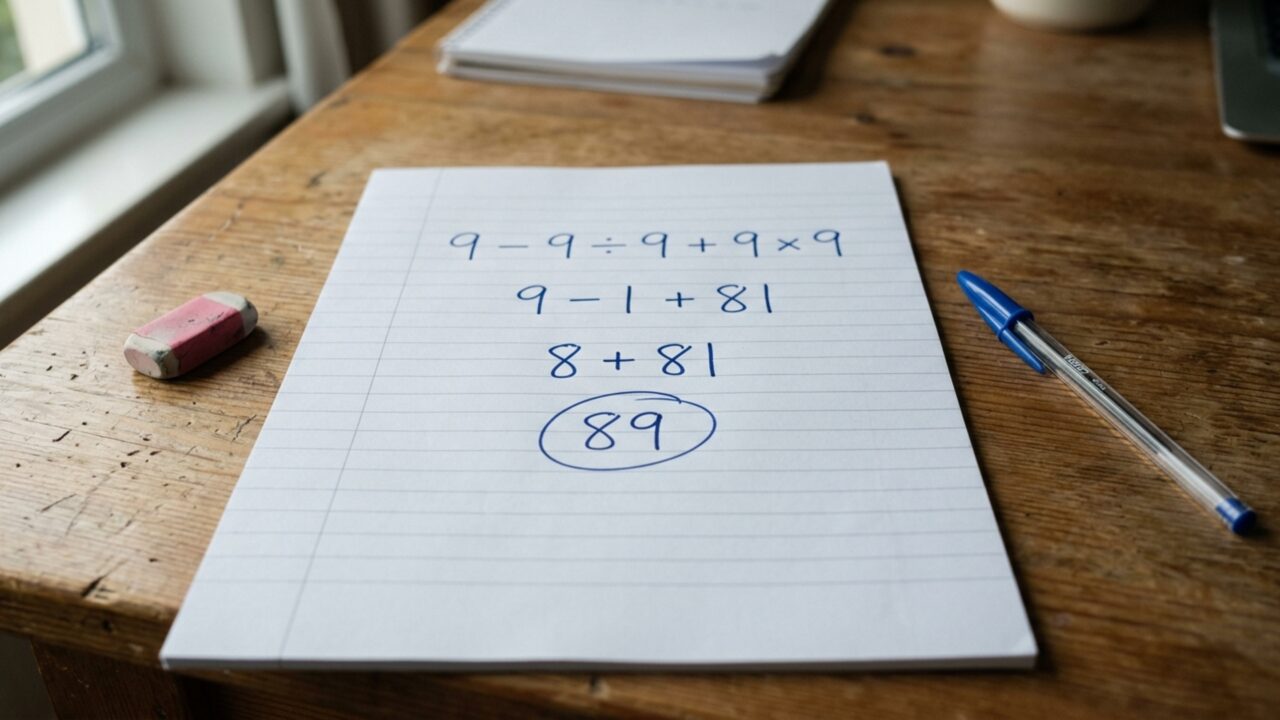 9 − 9 ÷ 9 + 9 × 9
9 − 1 + 81
8 + 81
89